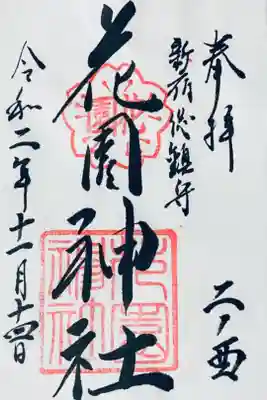 奉拝
二ノ酉
新宿総鎮守
花園神社
花園神社
令和二年十一月十四日